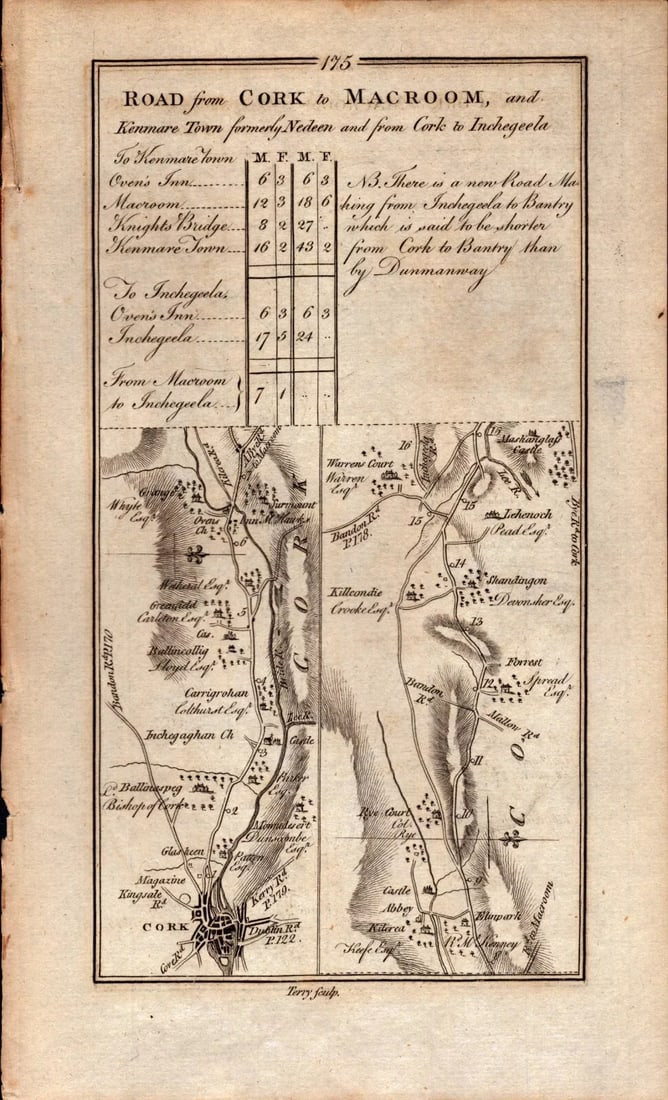 175
ROAD from CORK to MACROOM, and
Kenmare Town formerly Nedeen and from Cork to Inchegeela
To Kenmare Town M. F. M. F.
Oven's Inn 6 3 6 3
Macroom 12 3 18 6
Knights Bridge 8 2 27 ..
Kenmare Town 16 2 43 2
To Inchegeela.
Oven's Inn 6 3 6 3
Inchegeela 17 5 24 ..
From Macroom
to Inchegeela 7 1 .. ..
NB. There is a new Road Ma-
king from Inchegeela to Bantry
which is said to be shorter
from Cork to Bantry than
by Dunmanway
Grange
Whyte
Esqr.
Ovens
Ch
Inn
Surmount
Mc. Hawks
6
Wetheral Esqr.
Greenfield
Carleton Esqr.
5
Cas.
Ballincollig
Lloyd Esqr.
Bride R
CORK
Bandon Rd. P. 170
Carrigrohan
Colthurst Esqr.
Lee R.
Inchegaghan Ch
Castle
3
Ballinaspeg
Bishop of Cork
Parker
Esqr.
2
Monndesert
Dunscombe
Esqr.
Glasheen
Patton
Esqr.
Magazine
Kingsale
Rd
Kerry Rd
P. 179.
CORK
Dublin Rd
P. 122.
Cove Rd
16
Inchegeela
R.
15
Mashanglass
Castle
Lee R.
Warrens Court
Warren
Esqr.
15
15
Bandon Rd
P. 178.
Lehenoch
Pead Esqr.
Bye Rd. to Cork
14
Killcondie
Crooke Esqr.
Shandingon
Devonsher Esqr.
13
Forrest
Spread
Esqr.
12
Bandon
Rd
Mallow Rd
11
CO
Rye Court
Col.
Rye
10
9
Castle
Abbey
Kilcrea
Keefe Esqr.
Elmpark
R. Mc. Kenney
Rd. to Macroom
Terry sculp.